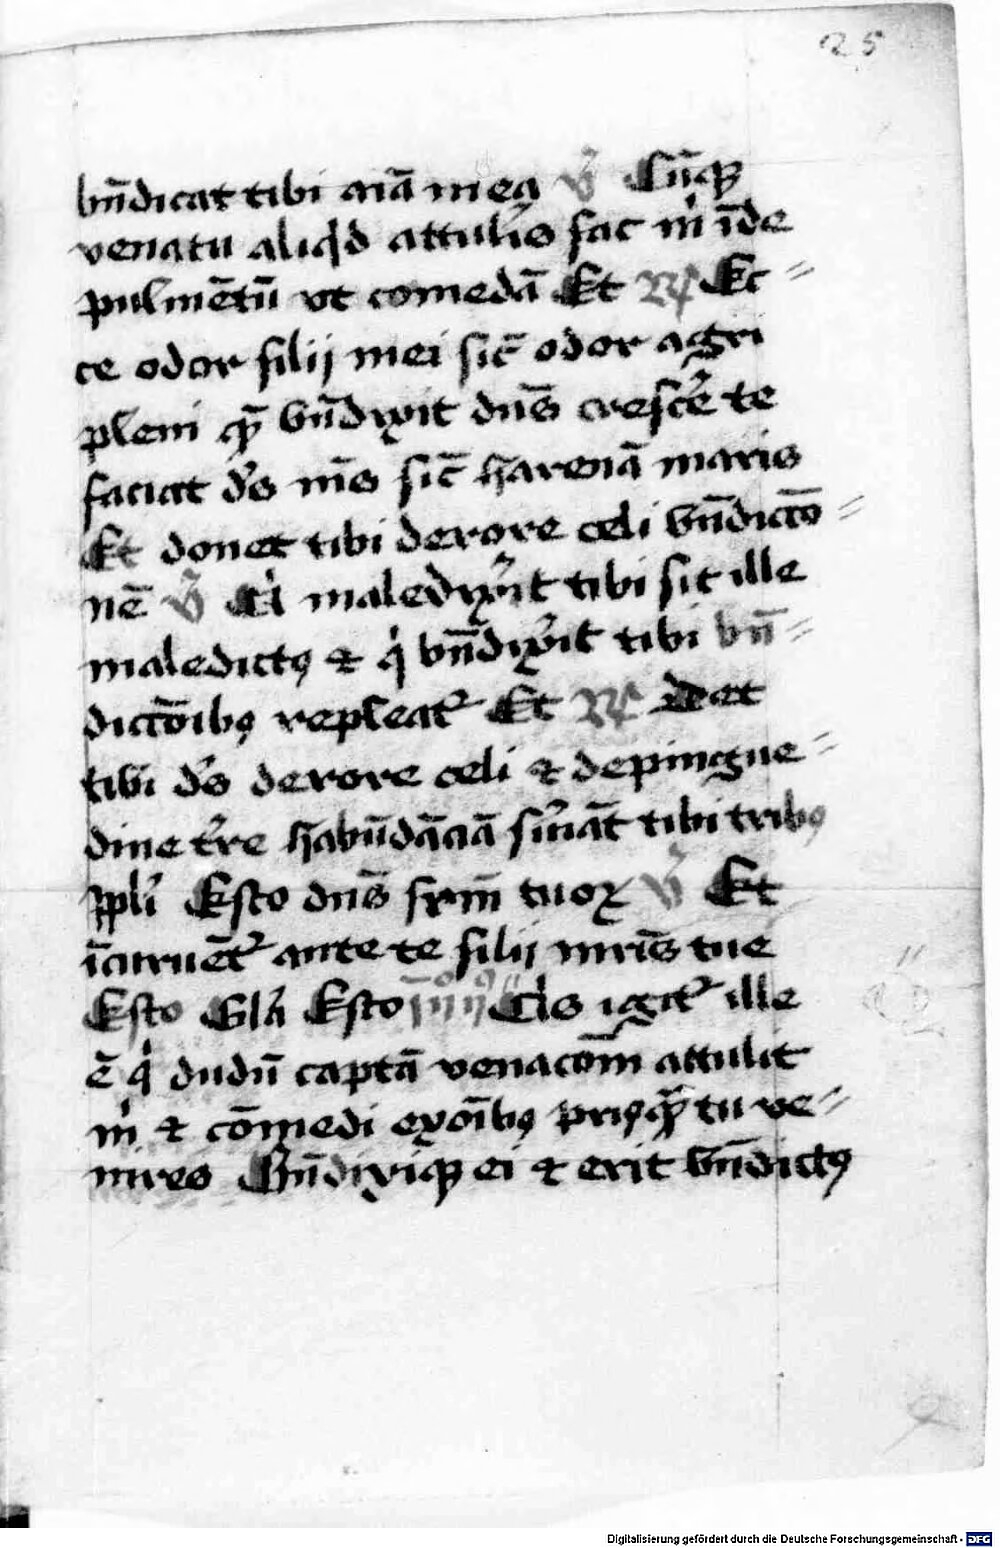 25
bn̄dicat tibi aīa mea v̄ Cūqꝫ
venatu aliqͥd attulīs fac m̄ īde
pulmētū vt comedā Et R̷ Ec⸗
ce odor filij mei sic̄ odor agri
pleni qᷓ bn̄dixit dn̄s cresce̾ te
faciat de̾s me̾s sic̄ harenā maris
Et donet tibi derore celi bn̄dictō⸗
nē v̄ Qͥ maledixe̾it tibi sit ille
maledictꝰ ⁊ qͥ bn̄dixe̾it tibi bn̄⸗
dictōibꝰ repleat᷑ Et R̷ Det
tibi de̾s derore celi ⁊ depingue⸗
dine te̾re habūdāciā s̾uiāt tibi tribꝰ
ppl̾i Esto dn̄s frm̄ tuoꝝ v̄ Et
īcuruēt᷑ ante te filij mr̄is tue
Esto Gl̾a Esto Qͥs igit᷑ ille
ē qͥ dudū captā venacōm̄ attulit
m̄ ⁊ cōmedi exoībꝰ priꝰqᷓ tu ve⸗
nires Bn̄dixiqꝫ ei ⁊ erit bn̄dictꝰ
Digitalisierung gefördert durch die Deutsche Forschungsgemeinschaft - DFG